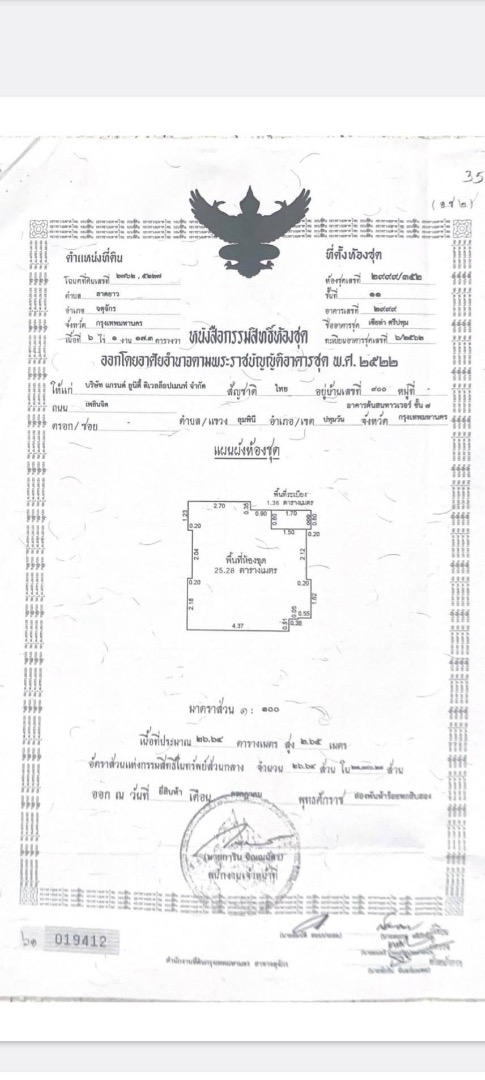 35
(อ.ช.๒)
ตำแหน่งที่ดิน
ที่ตั้งห้องชุด
โฉนดที่ดินเลขที่ ๒๓๖๒ , ๕๒๒๗
ห้องชุดเลขที่ ๒๙๙๙/๓๕๒
ตำบล ลาดยาว
ชั้นที่ ๑๑
อำเภอ จตุจักร
อาคารเลขที่ ๒๙๙๙
จังหวัด กรุงเทพมหานคร
ชื่ออาคารชุด เซียล่า ศรีปทุม
เนื้อที่ ๖ ไร่ ๑ งาน ๑๗.๓ ตารางวา
หนังสือกรรมสิทธิ์ห้องชุด
ทะเบียนอาคารชุดเลขที่ ๖/๒๕๖๒
ออกโดยอาศัยอำนาจตามพระราชบัญญัติอาคารชุด พ.ศ. ๒๕๒๒
ให้แก่ บริษัท แกรนด์ ยูนิตี้ ดิเวลล็อปเมนท์ จำกัด สัญชาติ ไทย อยู่บ้านเลขที่ ๙๐๐ หมู่ที่ -
ถนน เพลินจิต อาคารต้นสนทาวเวอร์ ชั้น ๗
ตรอก/ซอย - ตำบล/แขวง ลุมพินี อำเภอ/เขต ปทุมวัน จังหวัด กรุงเทพมหานคร
แผนผังห้องชุด
พื้นที่ระเบียง
1.36 ตารางเมตร
2.70 0.90 1.70
1.23 0.20
1.50 0.20
2.04 พื้นที่ห้องชุด 2.12
25.28 ตารางเมตร
0.20 0.20
2.18 1.62
0.55
4.37 0.51 0.38
มาตราส่วน ๑ : ๑๐๐
เนื้อที่ประมาณ ๒๖.๖๔ ตารางเมตร สูง ๒.๖๕ เมตร
อัตราส่วนแห่งกรรมสิทธิ์ในทรัพย์ส่วนกลาง จำนวน ๒๖.๖๔ ส่วน ใน ส่วน
ออก ณ วันที่ ยี่สิบห้า เดือน พุทธศักราช สองพันห้าร้อยหกสิบสอง
พนักงานเจ้าหน้าที่
๖๑ 019412
สำนักงานที่ดินกรุงเทพมหานคร สาขาจตุจักร